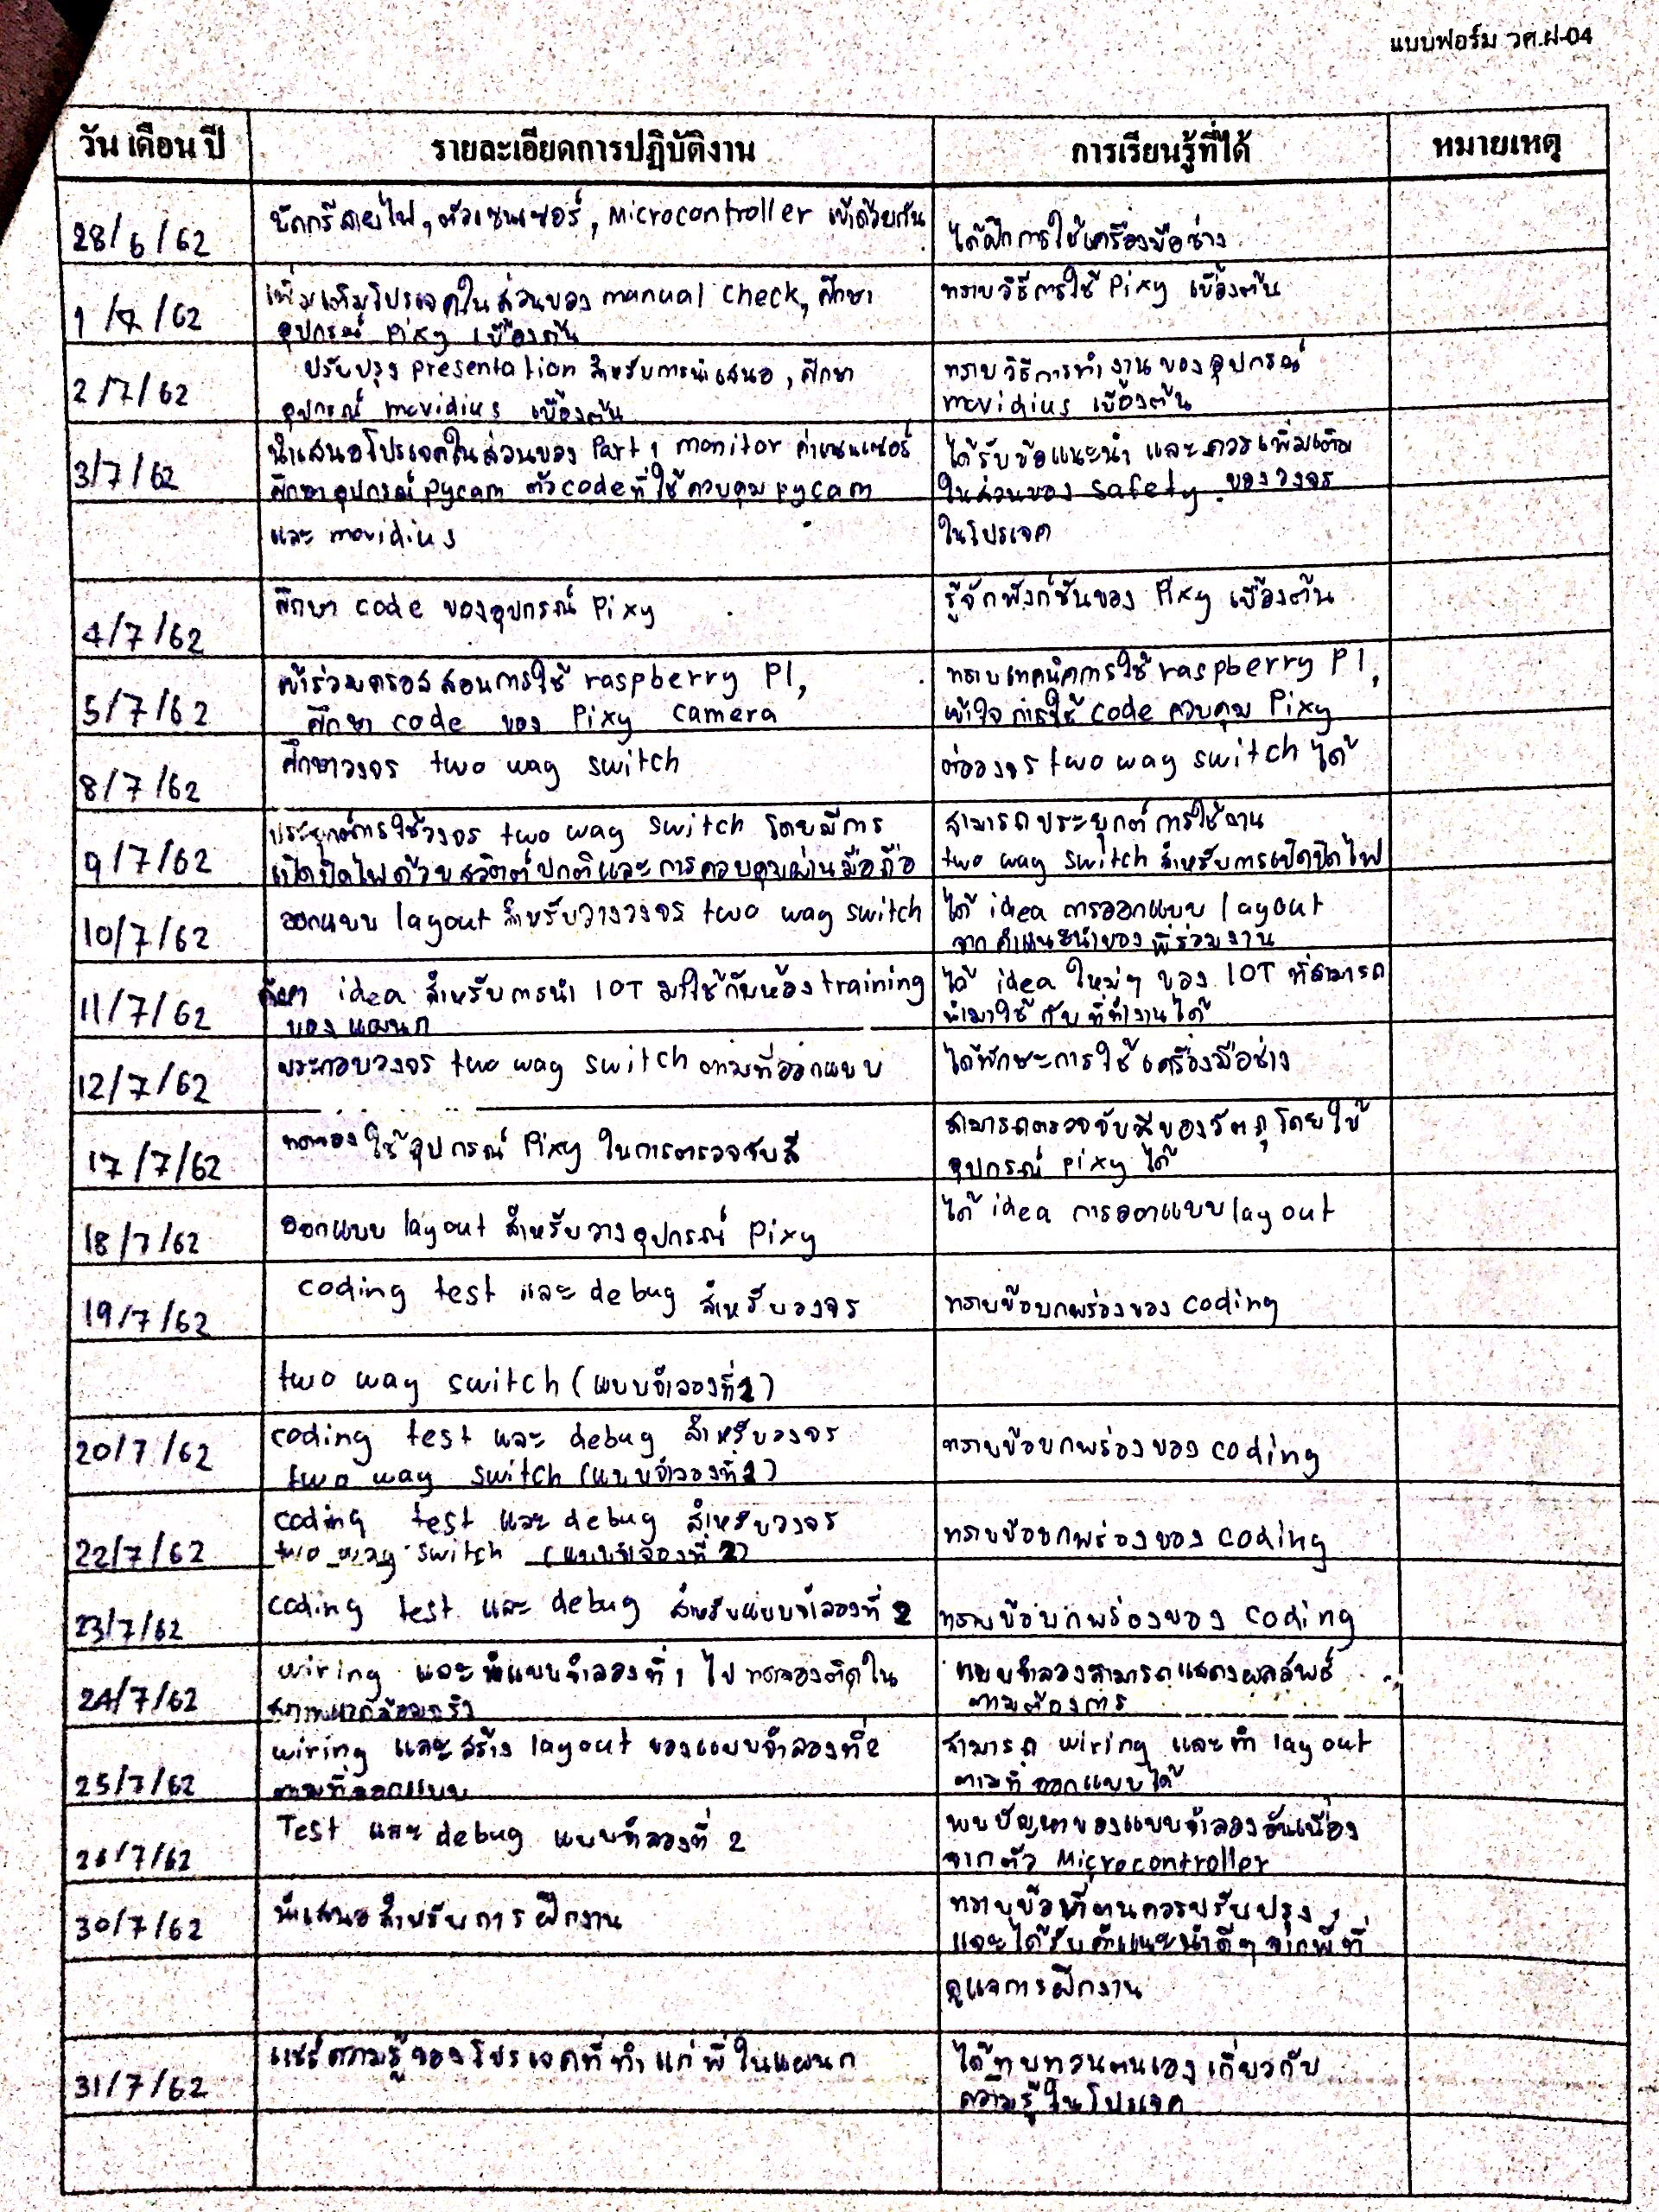 แบบฟอร์ม วศ.ฝ-04
วัน เดือน ปี รายละเอียดการปฏิบัติงาน การเรียนรู้ที่ได้ หมายเหตุ
28/6/62 บัดกรีสายไฟ, ตัวเซนเซอร์, Microcontroller เข้าด้วยกัน ได้ฝึกการใช้เครื่องมือช่าง
1/7/62 เพิ่มเติมโปรเจคในส่วนของ manual check, ศึกษา ทราบวิธีการใช้ Pixy เบื้องต้น
อุปกรณ์ Pixy เบื้องต้น
2/7/62 ปรับปรุง presentation สำหรับการนำเสนอ, ศึกษา ทราบวิธีการทำงานของอุปกรณ์
อุปกรณ์ movidius เบื้องต้น movidius เบื้องต้น
3/7/62 นำเสนอโปรเจคในส่วนของ Part 1 monitor ค่าเซนเซอร์ ได้รับข้อแนะนำ และควรเพิ่มเติม
ศึกษาอุปกรณ์ pycam ตัว code ที่ใช้ควบคุม pycam ในส่วนของ safety ของวงจร
และ movidius ในโปรเจค
4/7/62 ศึกษา code ของอุปกรณ์ Pixy รู้จักฟังก์ชันของ Pixy เบื้องต้น
5/7/62 เข้าร่วมคอร์สสอนการใช้ raspberry PI, ทราบเทคนิคการใช้ raspberry PI,
ศึกษา code ของ Pixy camera เข้าใจการใช้ code ควบคุม Pixy
8/7/62 ศึกษาวงจร two way switch ต่อวงจร two way switch ได้
9/7/62 ประยุกต์การใช้วงจร two way switch โดยมีการ สามารถประยุกต์การใช้งาน
เปิดปิดไฟด้วยสวิตต์ปกติและการควบคุมผ่านมือถือ two way switch สำหรับการเปิดปิดไฟ
10/7/62 ออกแบบ layout สำหรับวางวงจร two way switch ได้ idea การออกแบบ layout
จากคำแนะนำของพี่ร่วมงาน
11/7/62 idea สำหรับการนำ IOT มาใช้กับห้อง training ได้ idea ใหม่ๆ ของ IOT ที่สามารถ
ของแผนก นำมาใช้กับที่ทำงานได้
12/7/62 ประกอบวงจร two way switch ตามที่ออกแบบ ได้ทักษะการใช้เครื่องมือช่าง
17/7/62 ทดลองใช้อุปกรณ์ Pixy ในการตรวจจับสี สามารถตรวจจับสีของวัตถุโดยใช้
อุปกรณ์ pixy ได้
18/7/62 ออกแบบ layout สำหรับวางอุปกรณ์ Pixy ได้ idea การออกแบบ layout
19/7/62 coding test และ debug สำหรับวงจร ทราบข้อบกพร่องของ coding
two way switch (แบบจำลองที่ 2)
20/7/62 coding test และ debug สำหรับวงจร ทราบข้อบกพร่องของ coding
two way switch (แบบจำลองที่ 2)
22/7/62 coding test และ debug สำหรับวงจร ทราบข้อบกพร่องของ coding
two way switch (แบบจำลองที่ 2)
23/7/62 coding test และ debug สำหรับแบบจำลองที่ 2 ทราบข้อบกพร่องของ coding
24/7/62 wiring และนำแบบจำลองที่ 1 ไปทดลองติดใน แบบจำลองสามารถแสดงผลลัพธ์
สภาพแวดล้อมจริง ตามต้องการ
25/7/62 wiring และสร้าง layout ของแบบจำลองที่ 2 สามารถ wiring และทำ layout
ตามที่ออกแบบ ตามที่ออกแบบได้
26/7/62 Test และ debug แบบจำลองที่ 2 พบปัญหาของแบบจำลองอันเนื่อง
จากตัว Microcontroller
30/7/62 นำเสนอสำหรับการฝึกงาน ทราบข้อที่ตนควรปรับปรุง,
และได้รับคำแนะนำดีๆ จากพี่ที่
ดูแลการฝึกงาน
31/7/62 แชร์ความรู้ของโปรเจคที่ทำแก่พี่ในแผนก ได้ทบทวนตนเองเกี่ยวกับ
ความรู้ในโปรเจค